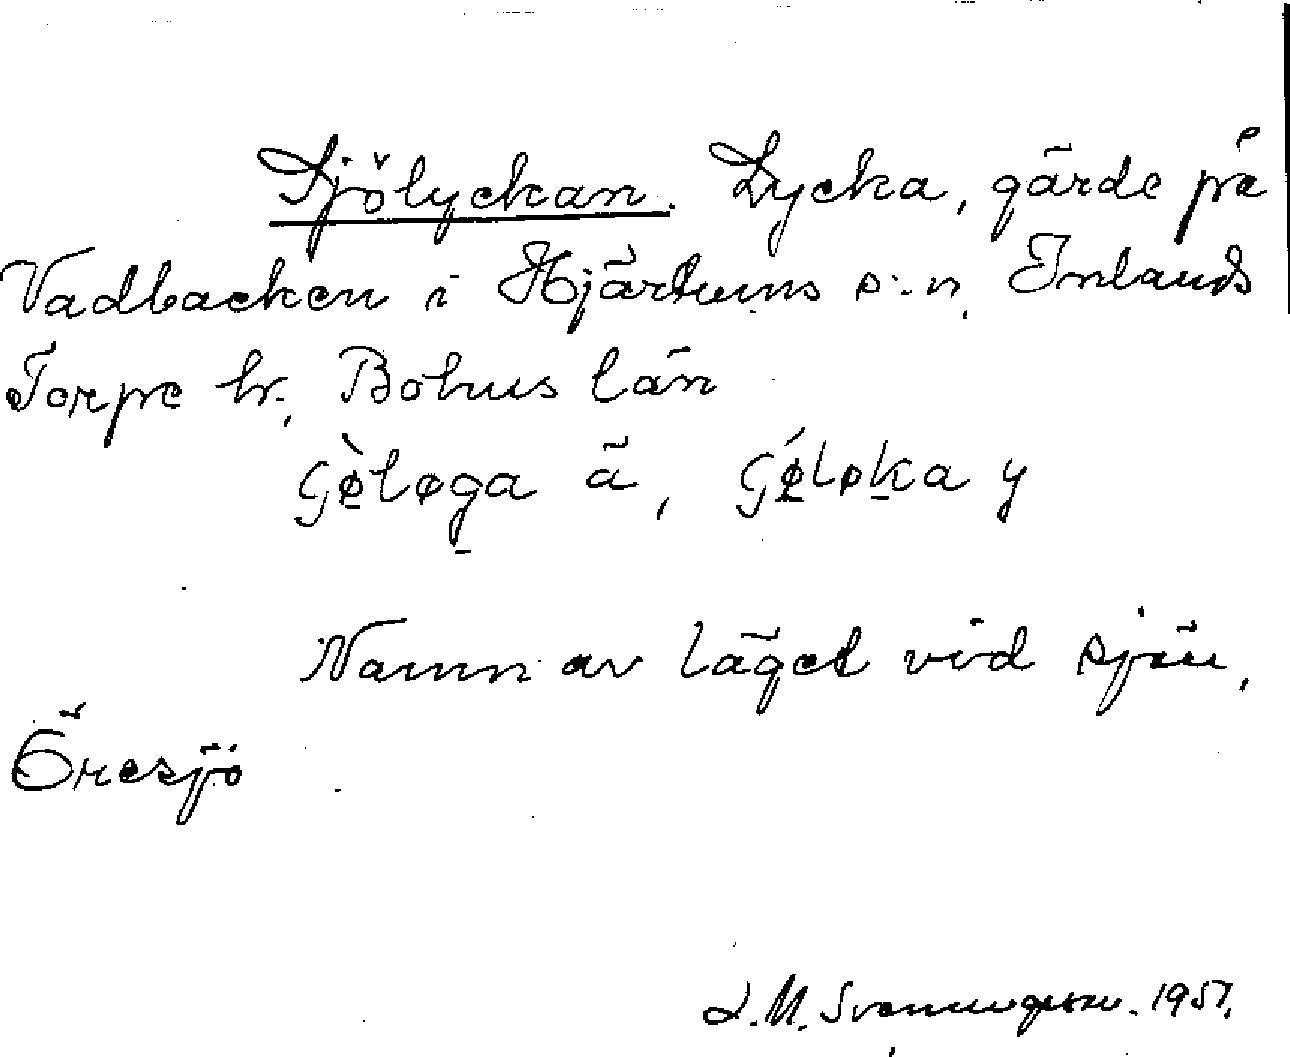 Sjölyckan. Lycka, gärde på
Vadbacken i Hjärtums s:n, Inlands
Torpe hr, Bohus län
Gø̀løga ä, Gǿløka y
Namn av läget vid sjön,
Öresjö
L.M. Svenungsson. 1957.